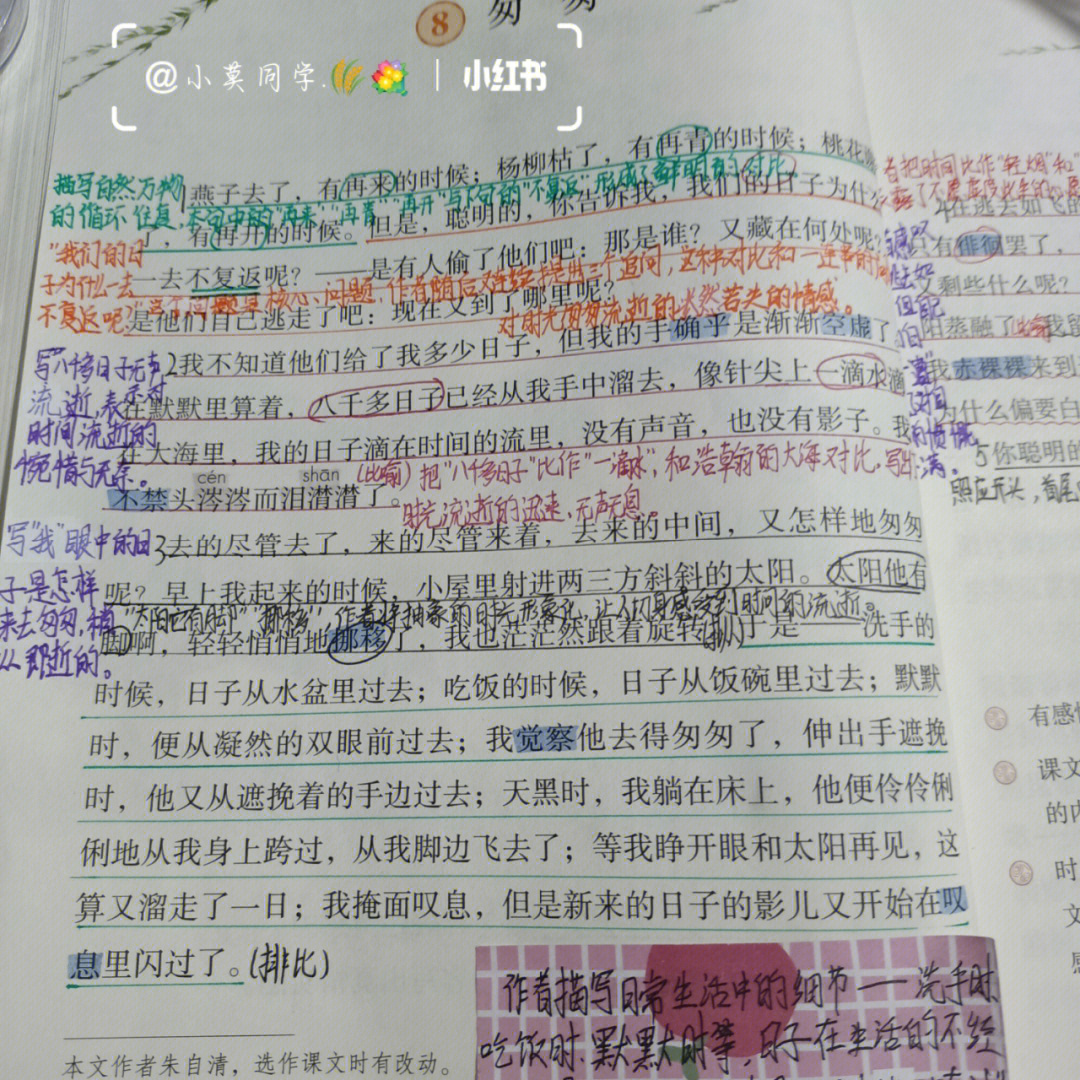 8 匆匆
@小莫同学. | 小红书
燕子去了，有再来的时候；杨柳枯了，有再青的时候；桃花
描写自然万物
的循环往复，本句中的"再来""再青""再开"与下句的"不复返"形成了鲜明的对比
了，有再开的时候。但是，聪明的，你告诉我，我们的日子为什么
"我们的日
子为什么一去
不复返呢？"
一去不复返呢？——是有人偷了他们吧：那是谁？又藏在何处呢？
这个问题是核心问题，作者随后又连续提出三个追问，这种对比和一连串的
对时光匆匆流逝的怅然若失的情感。
是他们自己逃走了吧：现在又到了哪里呢？
写八千多日子无声
流逝，表示对
时间流逝的
惋惜与无奈。
2我不知道他们给了我多少日子，但我的手确乎是渐渐空虚了
在默默里算着，八千多日子已经从我手中溜去，像针尖上一滴水滴
在大海里，我的日子滴在时间的流里，没有声音，也没有影子。我
cén shān
(比喻) 把"八千多日子"比作"一滴水"，和浩翰的大海对比，写出
时光流逝的迅速、无声无息。
不禁头涔涔而泪潸潸了。
写"我"眼中的日
子是怎样
来去匆匆，稍
从即逝的。
3去的尽管去了，来的尽管来着，去来的中间，又怎样地匆匆
呢？早上我起来的时候，小屋里射进两三方斜斜的太阳。太阳他有
"太阳它有脚""挪移"，作者将抽象的时光形象化，让人们身感受到时间的流逝。
脚啊，轻轻悄悄地挪移了，我也茫茫然跟着旋转。(拟人)于是——洗手的
时候，日子从水盆里过去；吃饭的时候，日子从饭碗里过去；默默
时，便从凝然的双眼前过去；我觉察他去得匆匆了，伸出手遮挽
时，他又从遮挽着的手边过去；天黑时，我躺在床上，他便伶伶俐
俐地从我身上跨过，从我脚边飞去了；等我睁开眼和太阳再见，这
算又溜走了一日；我掩面叹息，但是新来的日子的影儿又开始在叹
息里闪过了。(排比)
作者描写日常生活中的细节——洗手时、
吃饭时、默默时等，日子在生活的不经
本文作者朱自清，选作课文时有改动。
把时间比作"轻烟"和"
4在逃去如飞的
只有徘徊罢了，
又剩些什么呢？
阳蒸融了
我赤裸裸来到
为什么偏要白
5你聪明的
照应开头，首尾
有感情
课文
的内
时
文
感